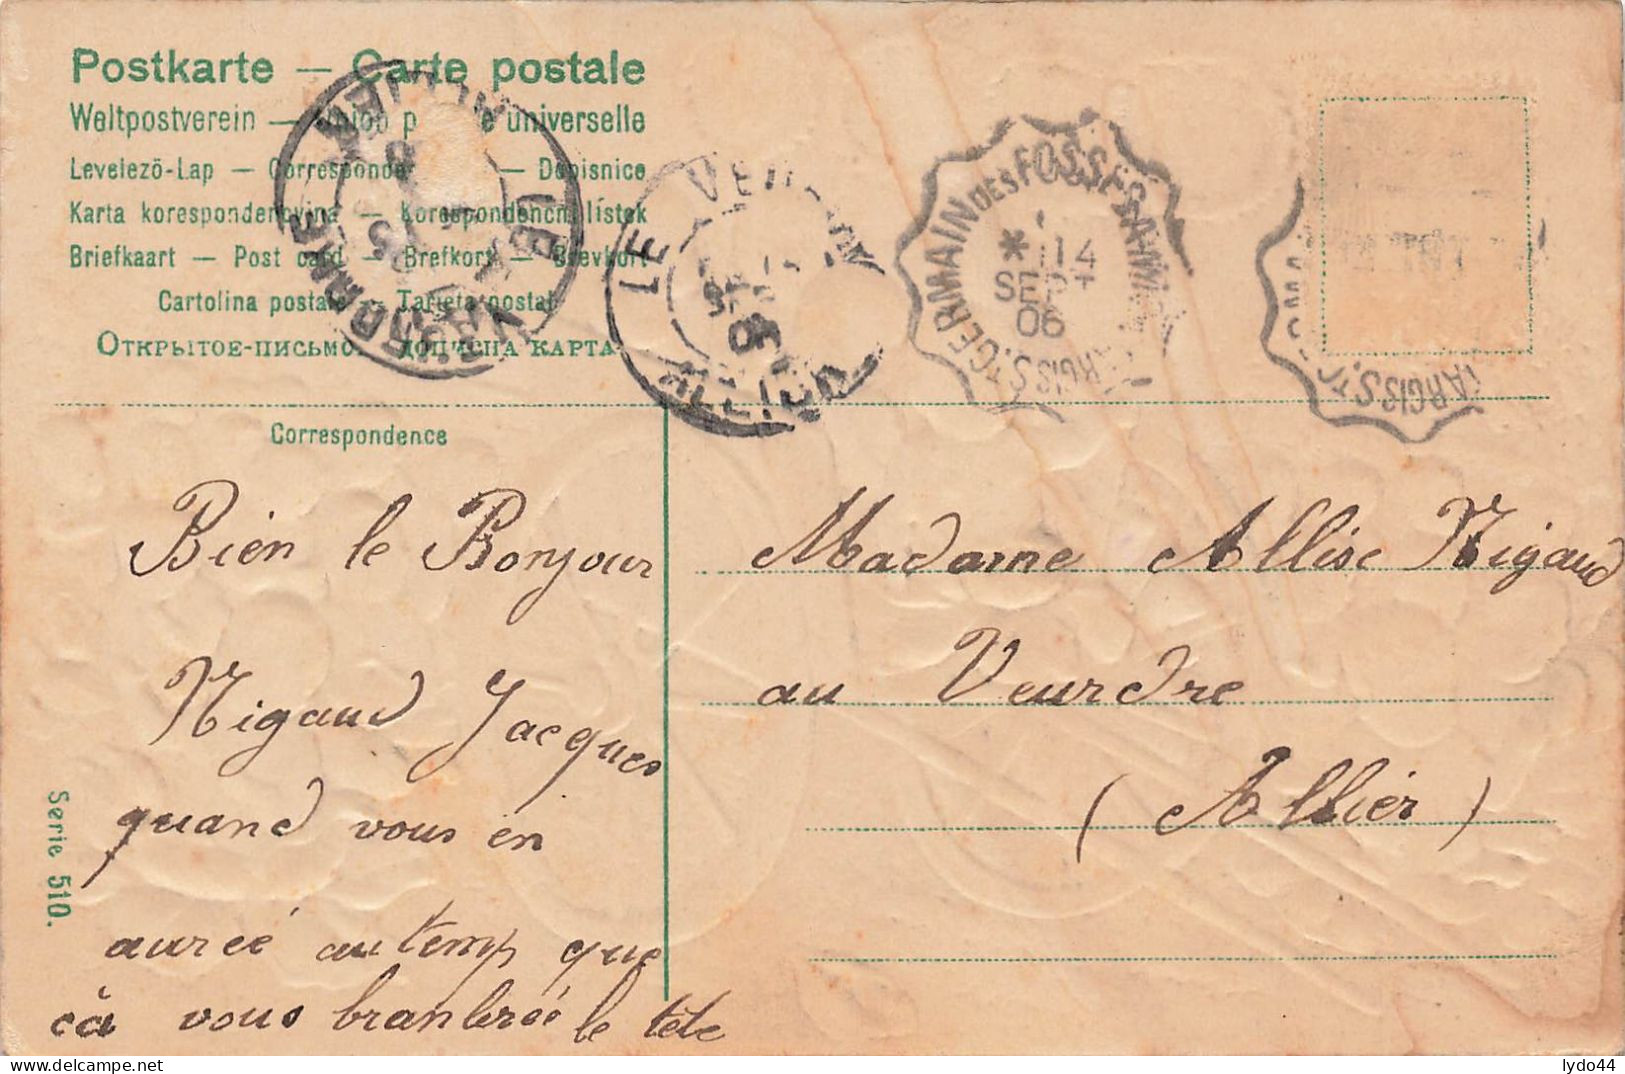 Postkarte — Carte postale
Weltpostverein — Union p e universelle
Levelezö-Lap — Corresponde — Dopisnice
Karta korespondencyjna — Korespondenční lístek
Briefkaart — Post card — Brefkort — Brevkort
Cartolina postale — Tarjeta postal
Открытое-письмо — дописна карта
ALLIER
LE VEURDRE
LE VEURDRE
ALLIER
ST GERMAIN DES FOSSÉS A
ARGIS
* 14
SEPT
06
ARGIS
Correspondence
Bien le Bonjour
Nigaud Jacques
quand vous en
aureé au temp que
cà vous branlerée le tête
Madame Allise Nigaud
au Veurdre
(Allier)
Serie 510.
lydo44